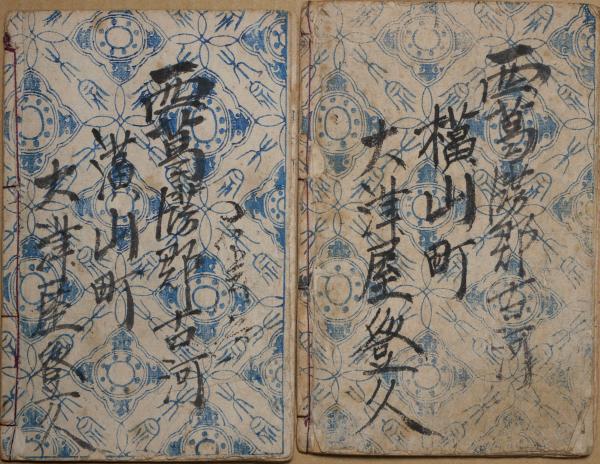 西葛飾郡古河
横山町
大津屋登久
西葛飾郡古河
横山町
大津屋登久